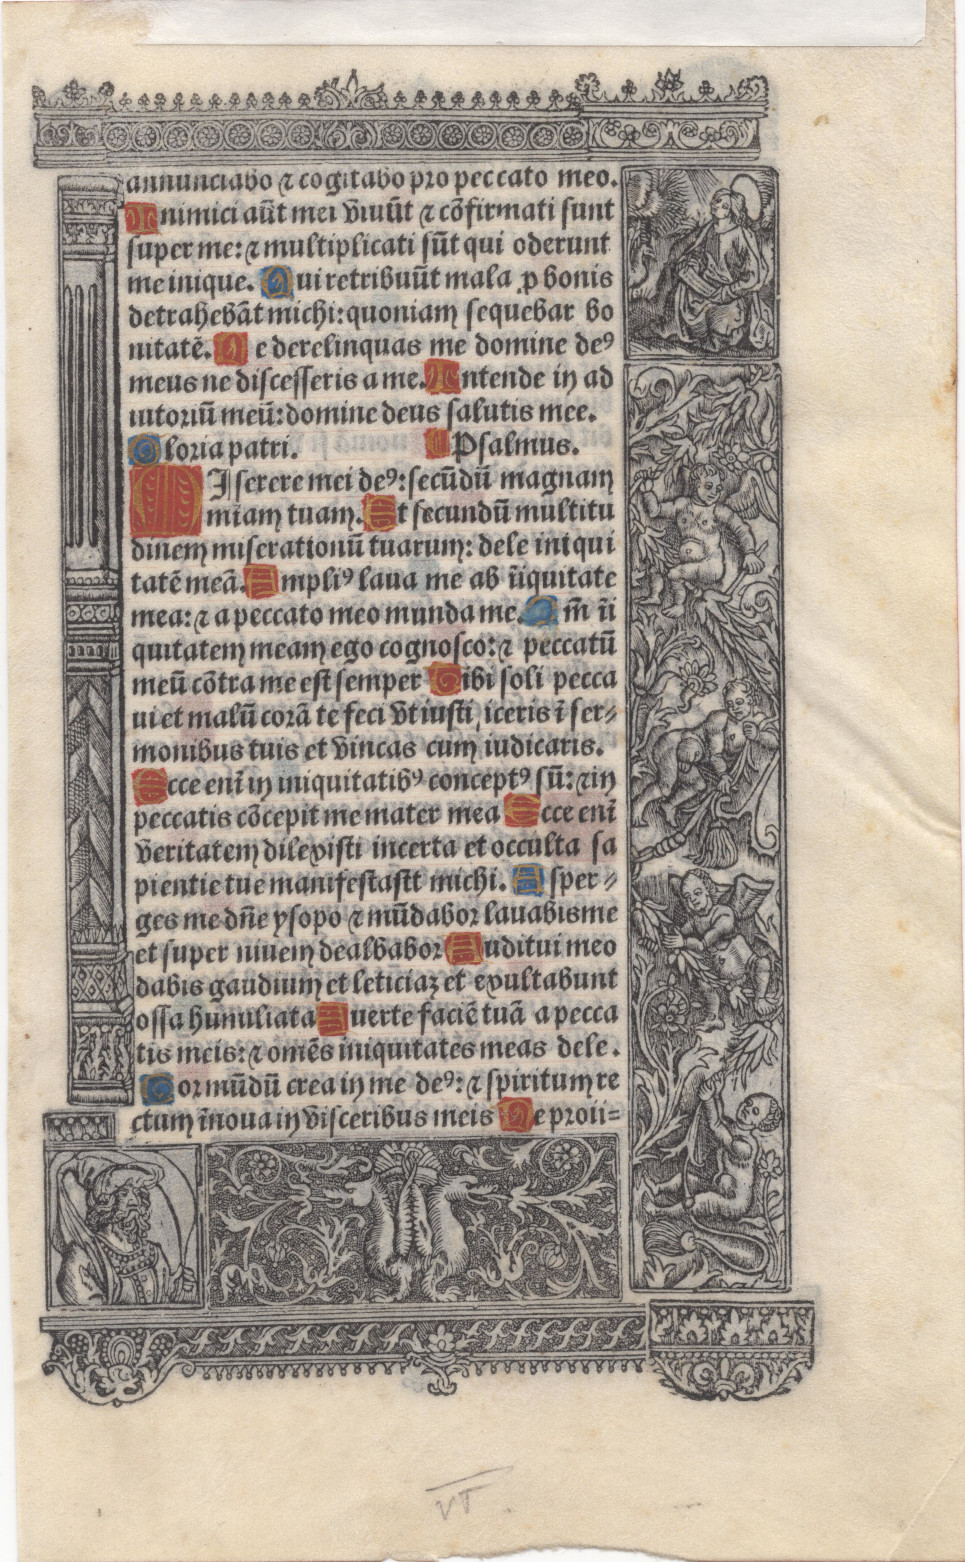 annunciabo ⁊ cogitabo pro peccato meo.
Inimici aūt mei viuūt ⁊ cōfirmati sunt
super me: ⁊ multiplicati sūt qui oderunt
me inique. Qui retribuūt mala ꝓ bonis
detrahebāt michi: quoniam sequebar bo
nitatē. Ne derelinquas me domine deꝰ
meus ne discesseris a me. Intende in ad
iutoriū meū: domine deus salutis mee.
Gloria patri. Psalmus.
MIserere mei deꝰ: secūdū magnam
miam tuam. Et secundū multitu
dinem miserationū tuarum: dele iniqui
tatē meā. Ampliꝰ laua me ab iīquitate
mea: ⁊ a peccato meo munda me. Qm̄ iī
quitatem meam ego cognosco: ⁊ peccatū
meū cōtra me est semper Tibi soli pecca
ui et malū corā te feci vt iusti iceris ī ser⸗
monibus tuis et vincas cum iudicaris.
Ecce enī in iniquitatibꝰ conceptꝰ sū: ⁊ in
peccatis cōcepit me mater mea Ecce enī
veritatem dilexisti incerta et occulta sa
pientie tue manifestastt michi. Asper⸗
ges me dn̄e ysopo ⁊ mūdabor lauabis me
et super niuem dealbabor Auditui meo
dabis gaudium et leticiaꝫ et exultabunt
ossa humiliata Auerte faciē tuā a pecca
tis meis: ⁊ omēs iniquitates meas dele.
Cor mūdū crea in me deꝰ: ⁊ spiritum re
ctum īnoua in visceribus meis Ne proii⸗
VT